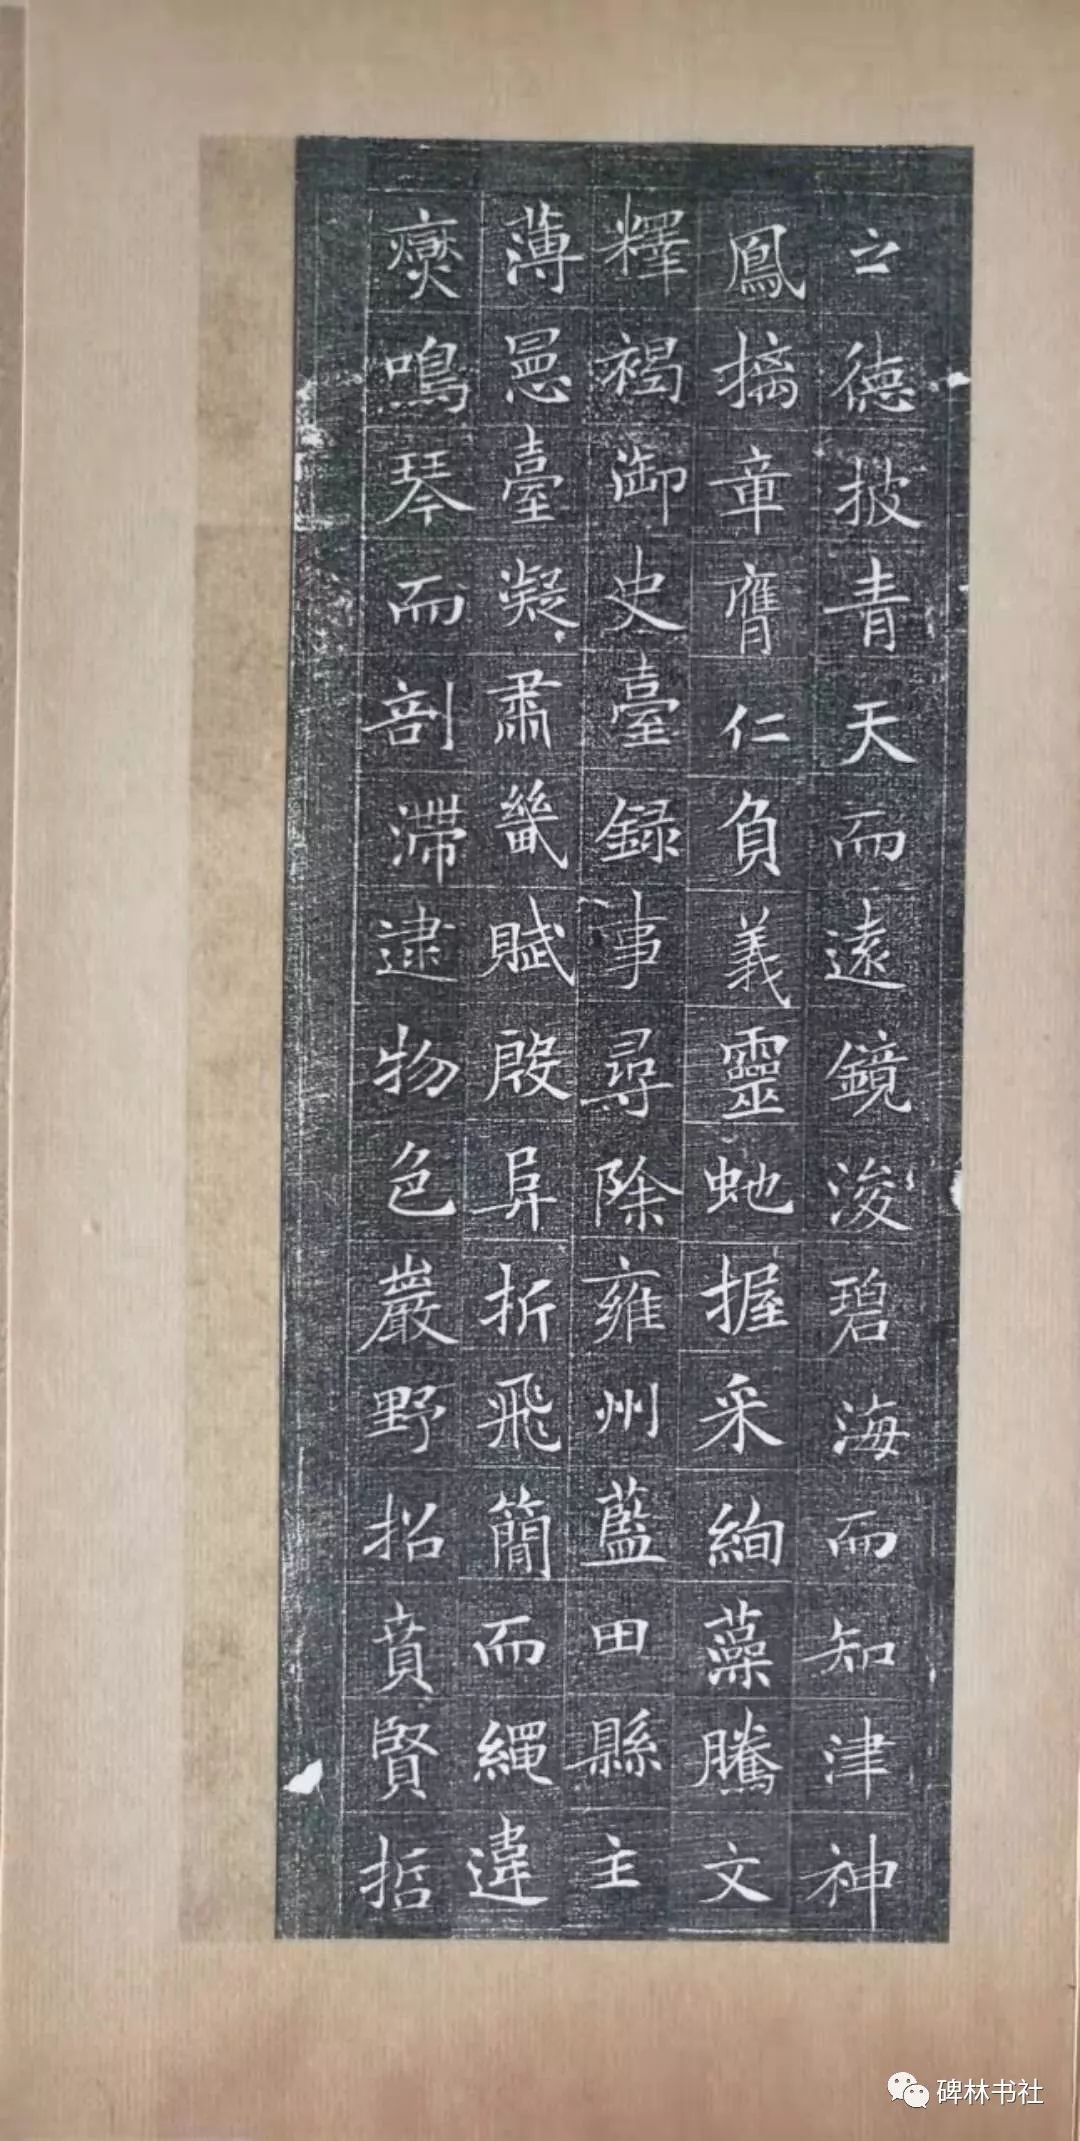 之德披青天而遠鏡浚碧海而知津神
鳳摛章膺仁負義靈虵握采絢藻騰文
釋褐御史臺錄事尋除雍州藍田縣主
薄邑臺凝肅畿賦殷阜折飛簡而繩違
鳴琴而剖滯逮物色巖野招賁賢哲
碑林书社